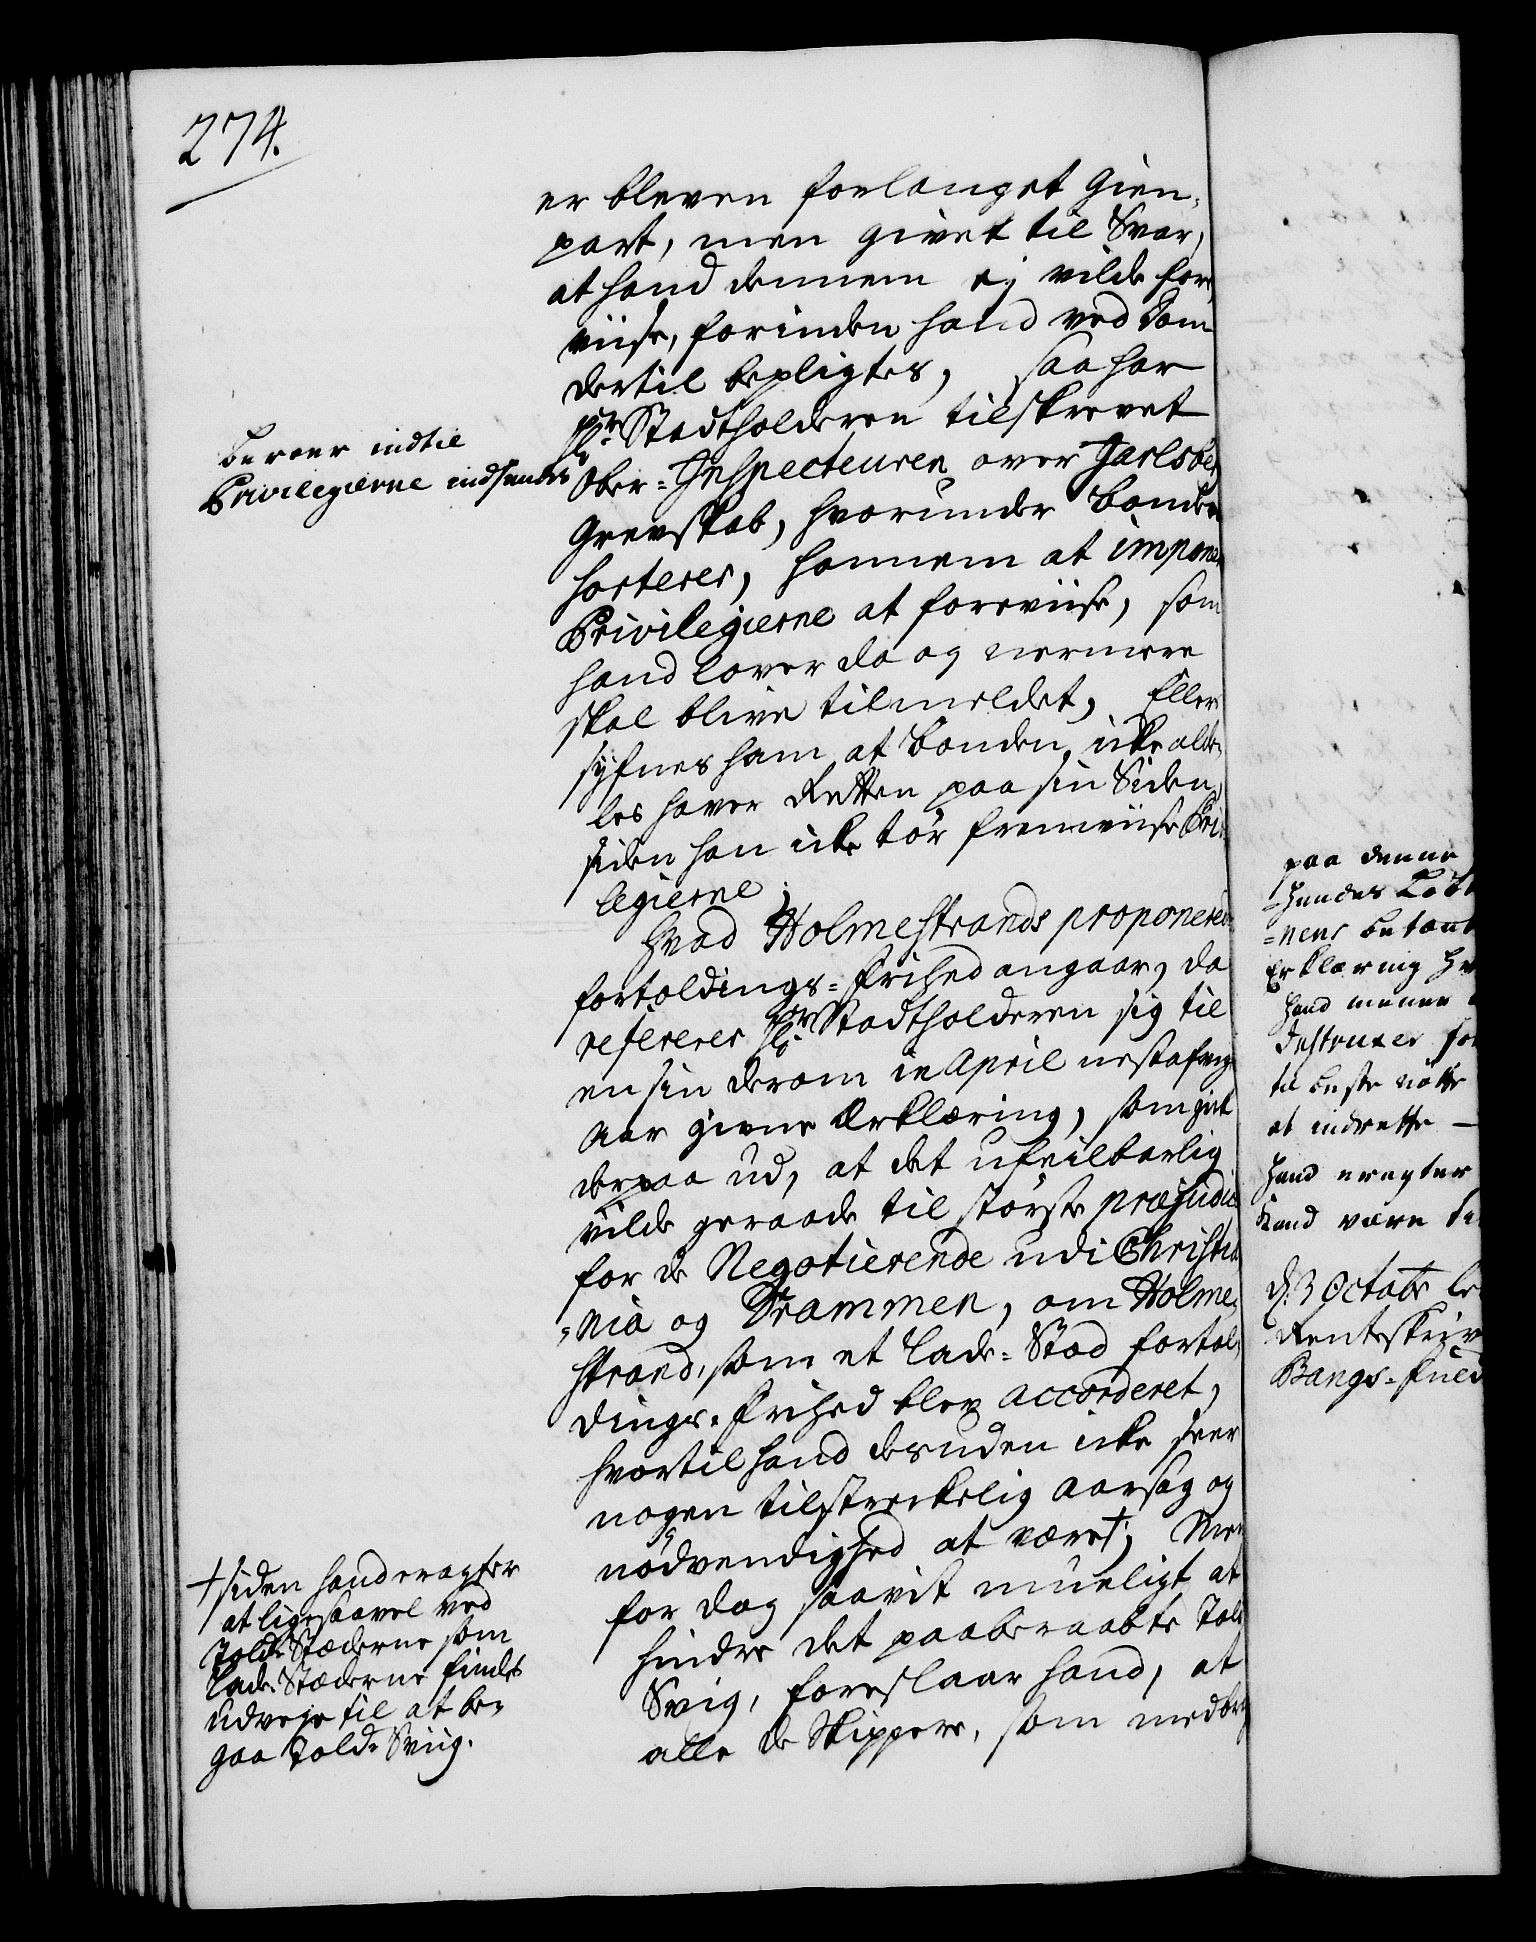 274.
er bleven forlanget Gien-
part, men givet til Svar,
at hand dennem ej vilde fore
viise, forinden hand ved Dom
dertil bepligtes, saa har
Hr. Stadtholderen tilskrevet
Ober-Inspecteuren over Jarlsber
Grevskab, hvorunder bonden
sorterer, hannem at impone
Privilegierne at foreviise, som
hand lover da og nermere
skal blive tilmeldet, Ellers
syfnes ham at bonden icke alde-
les haver Retten paa sin Siden,
siden han icke tør fremviise Privi
legierne;
Hvad Holmestrands proponerede
fortoldings-Frihed angaar, da
refererer Hr. Stadtholderen sig til
en sin derom in April nestafvig
Aar givne Erklæring, som gik
derpaa ud, at det ufeilbarlig
vilde geraade til største præjudice
for de Negotierende udi Christia
-nia og Drammen, om Holme-
strand, som et Lade-Stad fortol-
dings-Frihed blev accorderet,
hvortil hand desuden icke seer
nogen tilstreckelig Aarsag og
nødvendighed at være †; Men
for dog saavit mueligt at
hindre det paaberaabte Told
Svig, foreslaar hand, at
alle de Skippere, som medbrin
beroer indtil
Privilegierne indsendes
† siden hand eragter
at ligesaavel ved
Told-Stæderne som
Lade-Stæderne findes
udveje til at be-
gaa Told-Sviig.
paa denne
-hendes
-nens betænk
Erklæring
hand mener
til beste
at indrette —
Hand eragter
kand være
d. 3 Octobr
Rentskriv
Bangs-Fuld